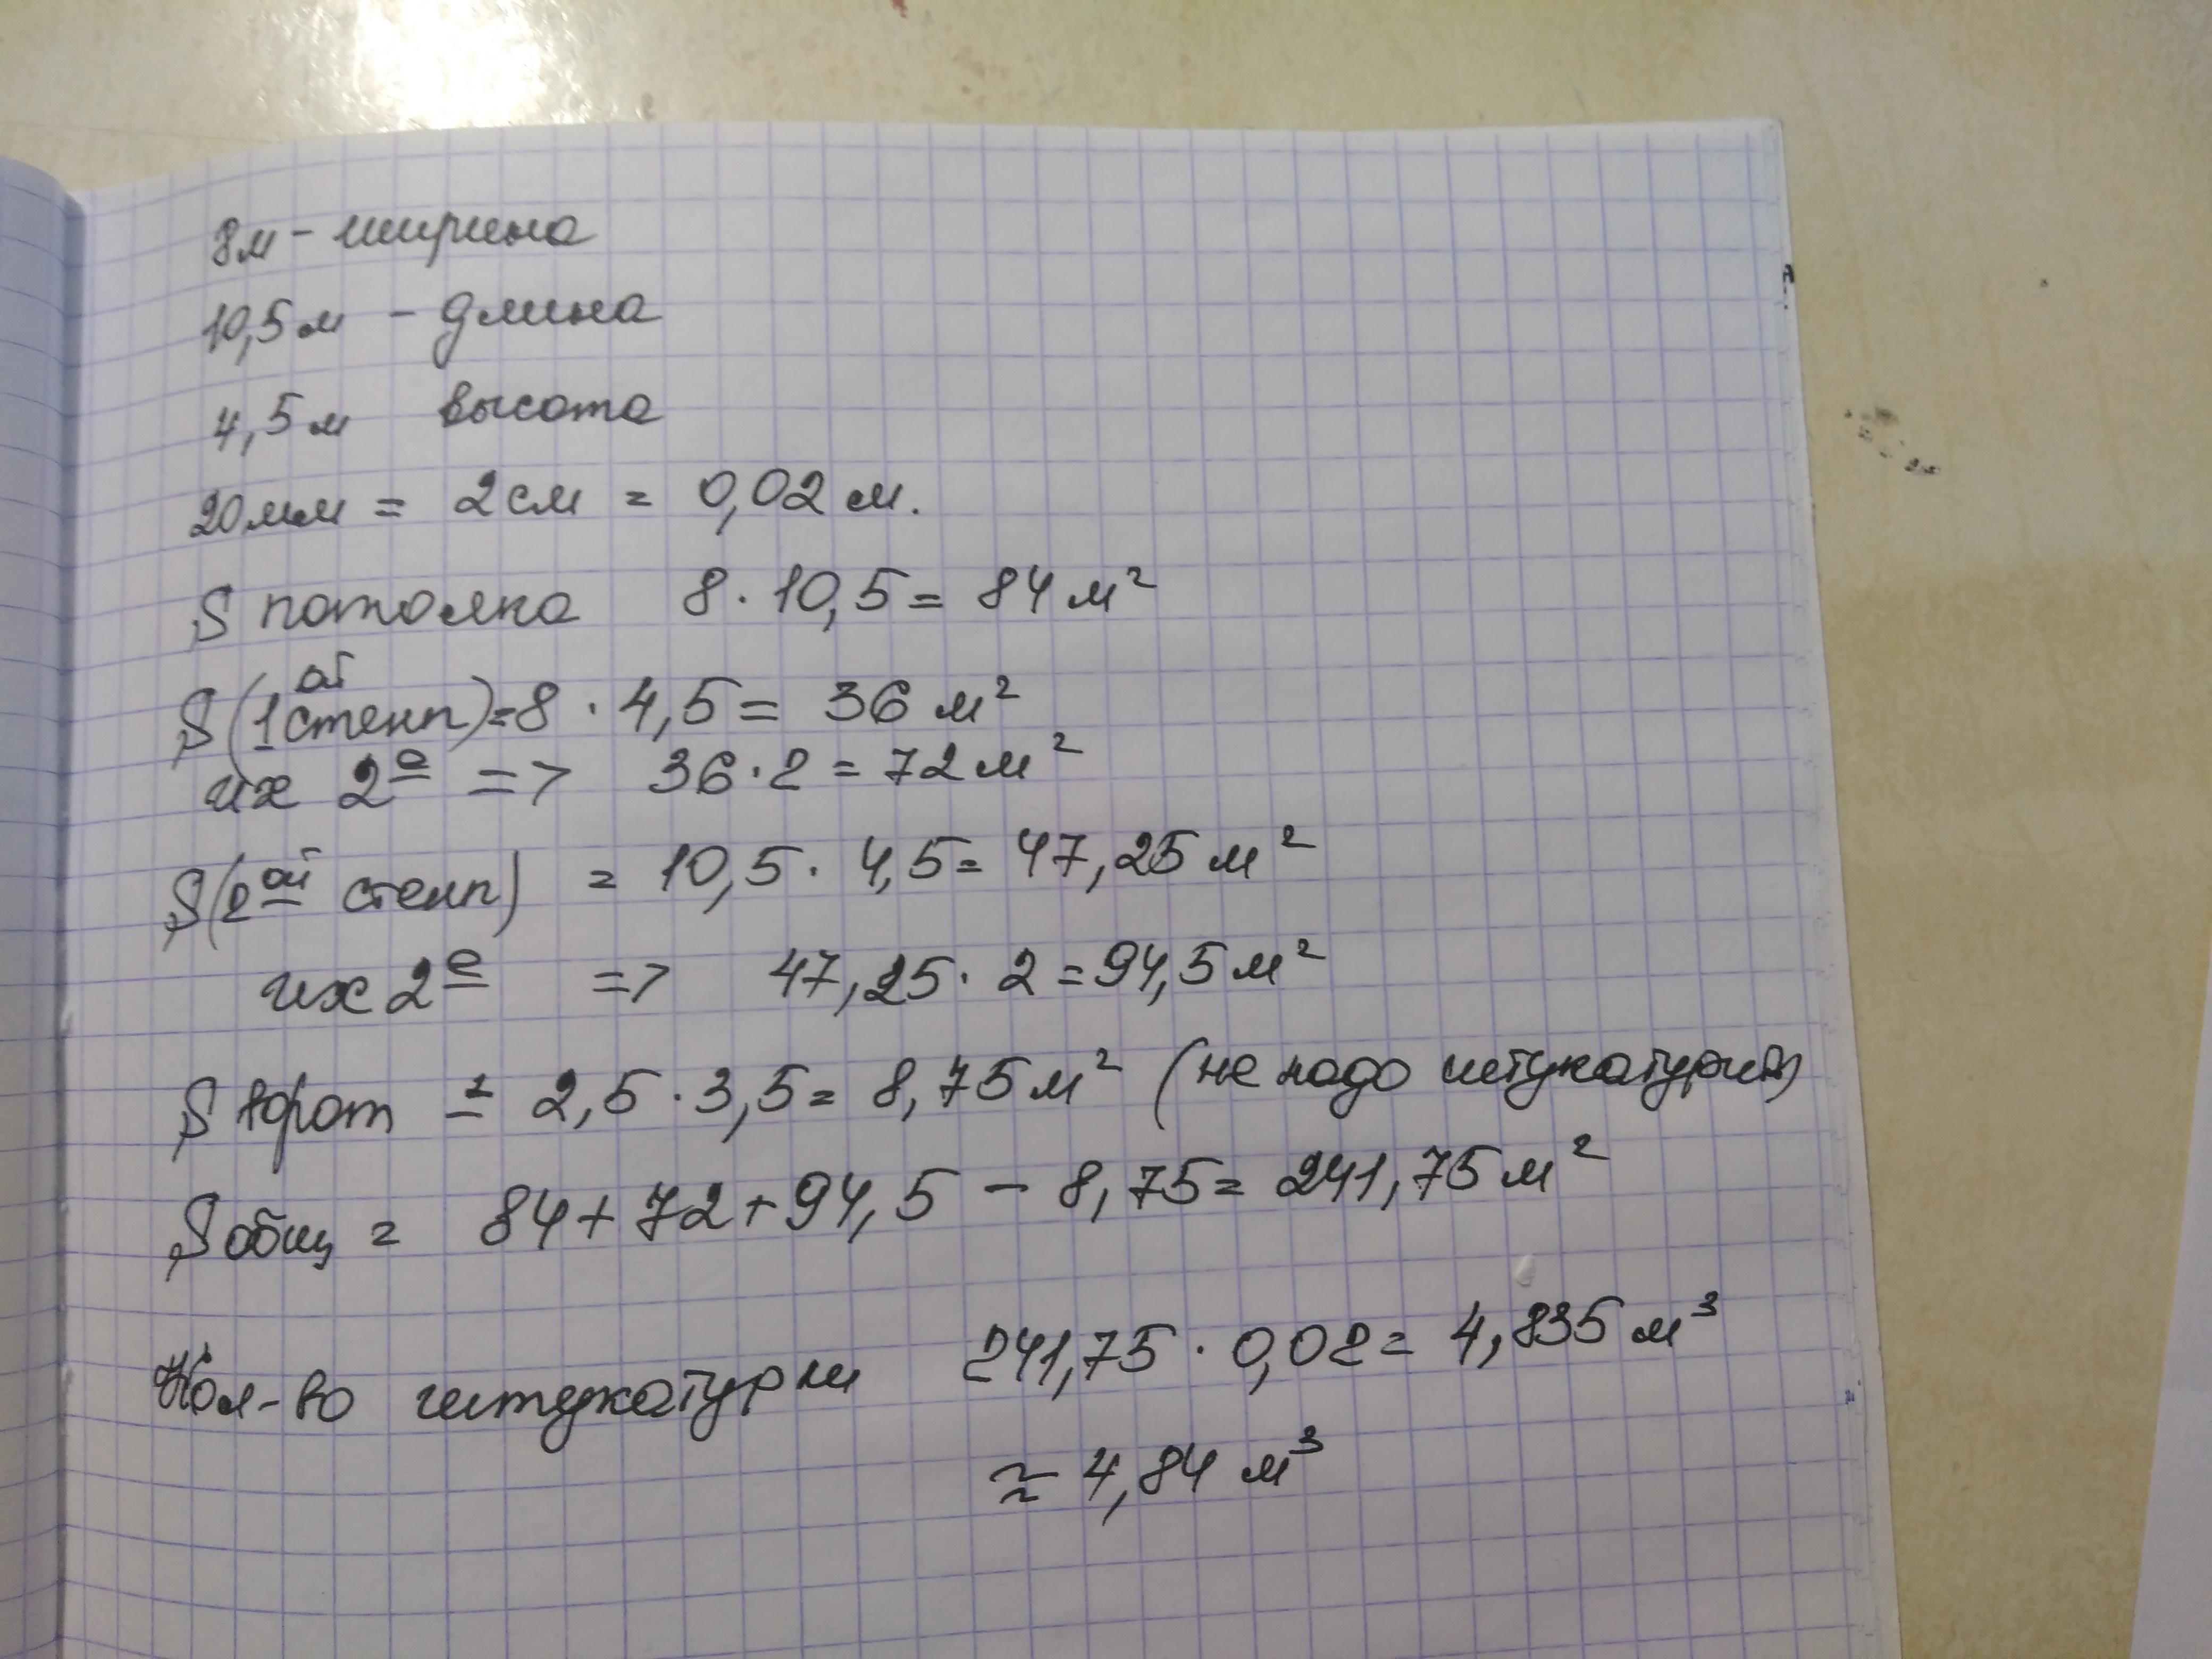 8м - ширина
10,5м - длина
4,5м высота
20мм = 2см = 0,02 м.
S потолка 8 · 10,5 = 84 м²
S (1ой стены) = 8 · 4,5 = 36 м²
их 2е => 36 · 2 = 72 м²
S (2ой стены) = 10,5 · 4,5 = 47,25 м²
их 2е => 47,25 · 2 = 94,5 м²
S ворот = 2,5 · 3,5 = 8,75 м² (не надо штукатурить)
S общ = 84 + 72 + 94,5 - 8,75 = 241,75 м²
Кол-во штукатурки 241,75 · 0,02 = 4,835 м³
≈ 4,84 м³